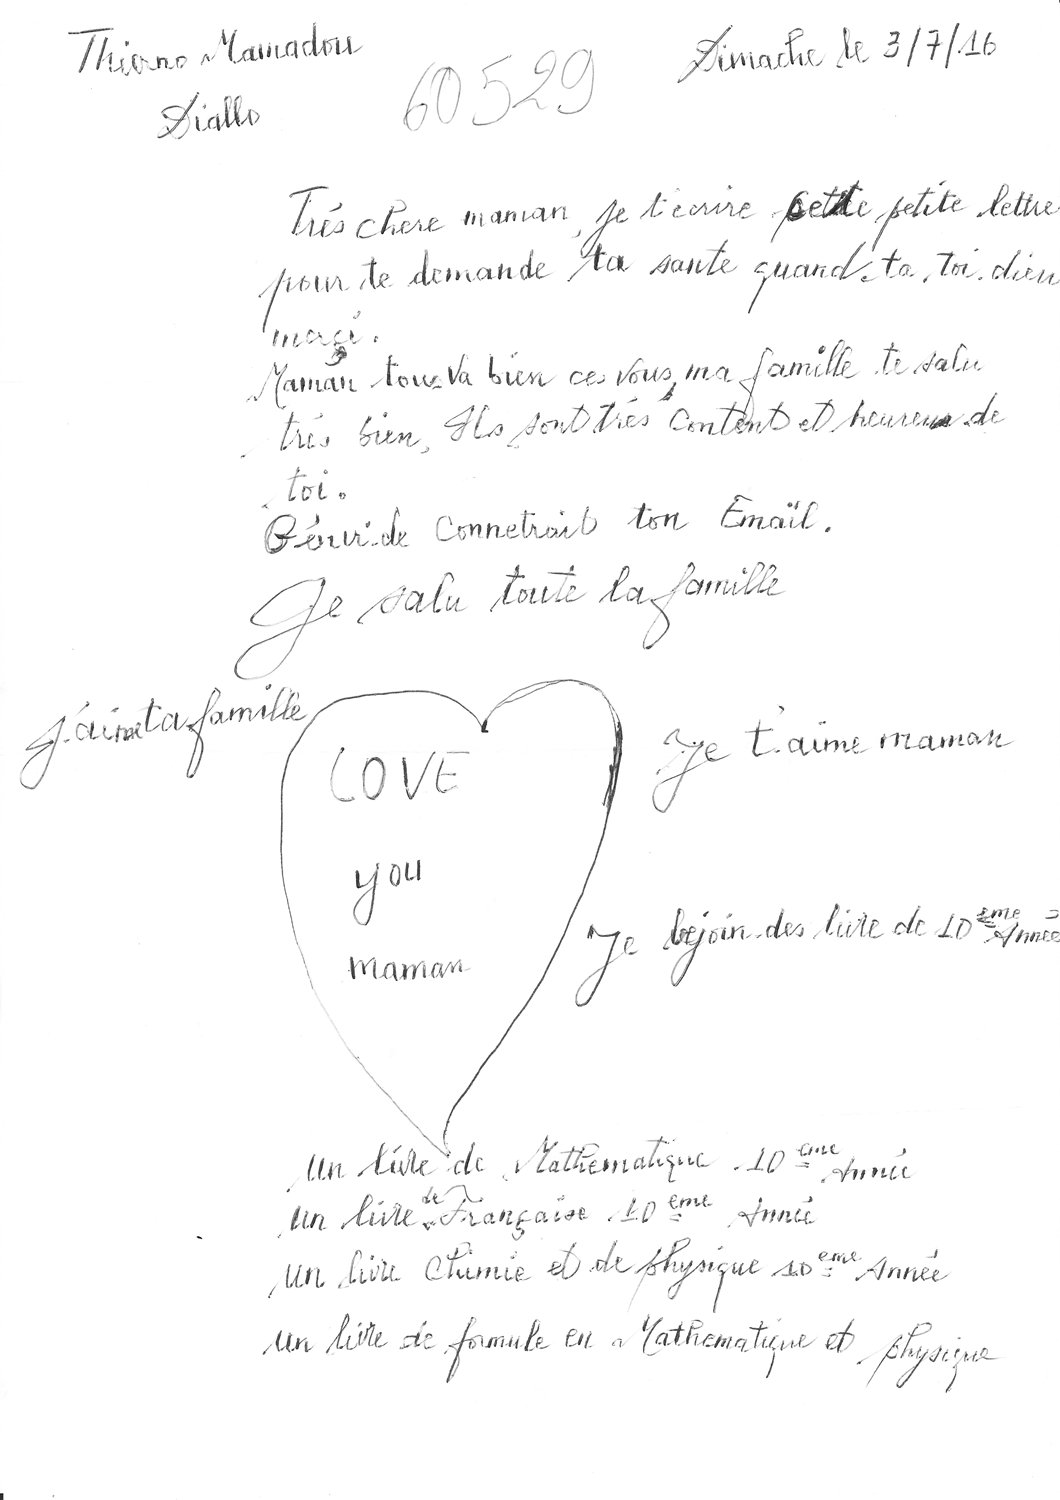 Thierno Mamadou
Diallo
60529
Dimache le 3/7/16
Trés chere maman, je t'ecrire cette petite lettre
pour te demande ta sante quand ta toi dieu
merçi.
Maman tous va bien ces vous, ma famille te salu
trés bien, Ils sont trés content et heureux de
toi.
de Connetrait ton Émaïl.
Je salu toute la famille
J'aime ta famille
LOVE
you
maman
Je t'aime maman
Je bejoin des livre de 10 eme Année
Un livre de Mathematique 10 eme Année
Un livre de Française 10 eme Année
Un livre Chimie et de physique 10 eme Année
Un livre de formule en Mathematique et physique